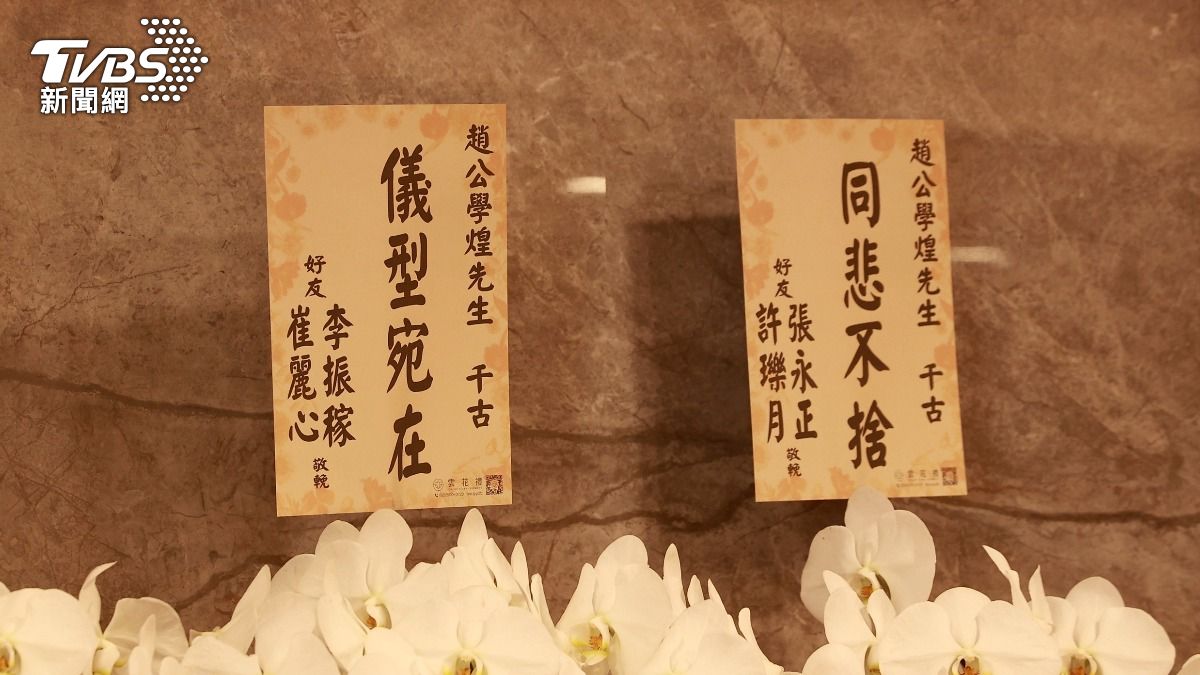 TVBS
新聞網
趙公學煌先生 千古
儀型宛在
好友
李振稼
崔麗心
敬輓
雲花禮
趙公學煌先生 千古
同悲不捨
好友
張永正
許瓅月
敬輓
雲花禮